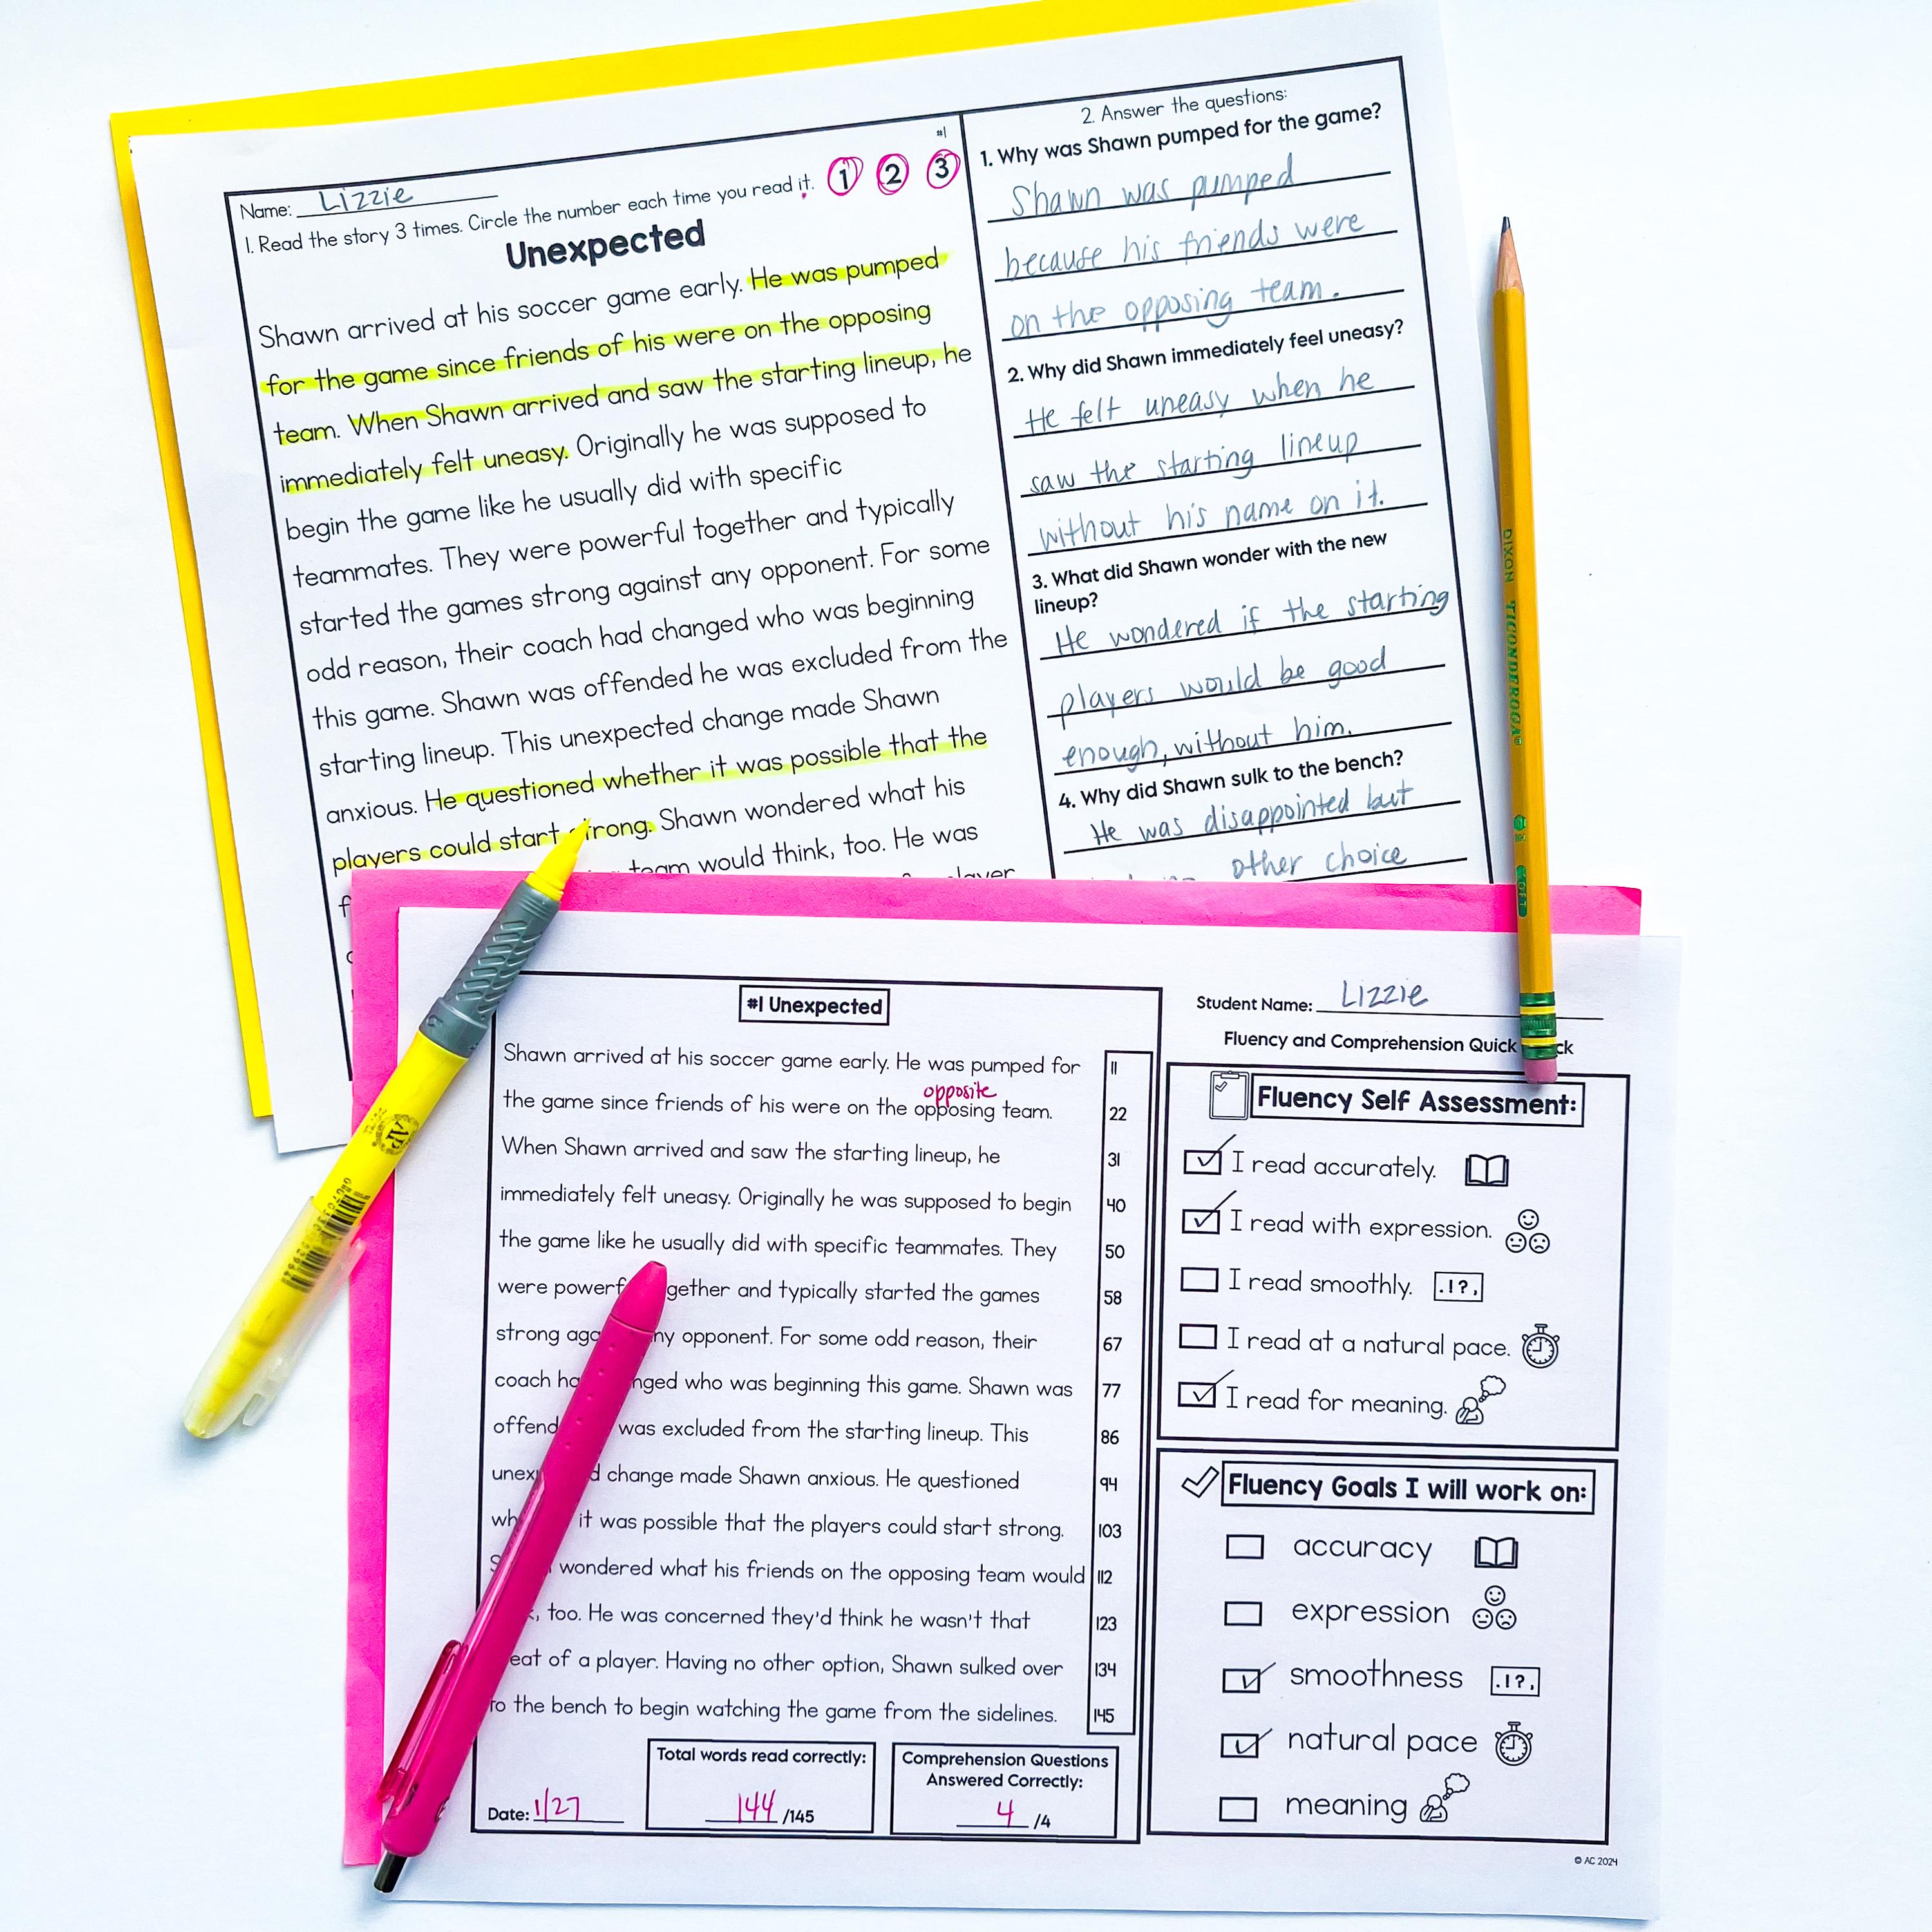 #1
Name: Lizzie
1. Read the story 3 times. Circle the number each time you read it. 1 2 3
Unexpected
Shawn arrived at his soccer game early. He was pumped
for the game since friends of his were on the opposing
team. When Shawn arrived and saw the starting lineup, he
immediately felt uneasy. Originally he was supposed to
begin the game like he usually did with specific
teammates. They were powerful together and typically
started the games strong against any opponent. For some
odd reason, their coach had changed who was beginning
this game. Shawn was offended he was excluded from the
starting lineup. This unexpected change made Shawn
anxious. He questioned whether it was possible that the
players could start strong. Shawn wondered what his
team would think, too. He was
2. Answer the questions:
1. Why was Shawn pumped for the game?
Shawn was pumped
because his friends were
on the opposing team.
2. Why did Shawn immediately feel uneasy?
He felt uneasy when he
saw the starting lineup
without his name on it.
3. What did Shawn wonder with the new
lineup?
He wondered if the starting
players would be good
enough, without him.
4. Why did Shawn sulk to the bench?
He was disappointed but
other choice
DIXON TICONDEROGA
#1 Unexpected
Shawn arrived at his soccer game early. He was pumped for 11
opposite
the game since friends of his were on the opposing team. 22
When Shawn arrived and saw the starting lineup, he 31
immediately felt uneasy. Originally he was supposed to begin 40
the game like he usually did with specific teammates. They 50
were powerf gether and typically started the games 58
strong aga ny opponent. For some odd reason, their 67
coach ha nged who was beginning this game. Shawn was 77
offend was excluded from the starting lineup. This 86
unex d change made Shawn anxious. He questioned 94
wh it was possible that the players could start strong. 103
wondered what his friends on the opposing team would 112
, too. He was concerned they'd think he wasn't that 123
eat of a player. Having no other option, Shawn sulked over 134
to the bench to begin watching the game from the sidelines. 145
Date: 1/27
Total words read correctly:
144 /145
Comprehension Questions
Answered Correctly:
4 /4
Student Name: Lizzie
Fluency and Comprehension Quick ck
Fluency Self Assessment:
I read accurately.
I read with expression.
I read smoothly. .!?,
I read at a natural pace.
I read for meaning.
Fluency Goals I will work on:
accuracy
expression
smoothness .!?,
natural pace
meaning
© AC 2024